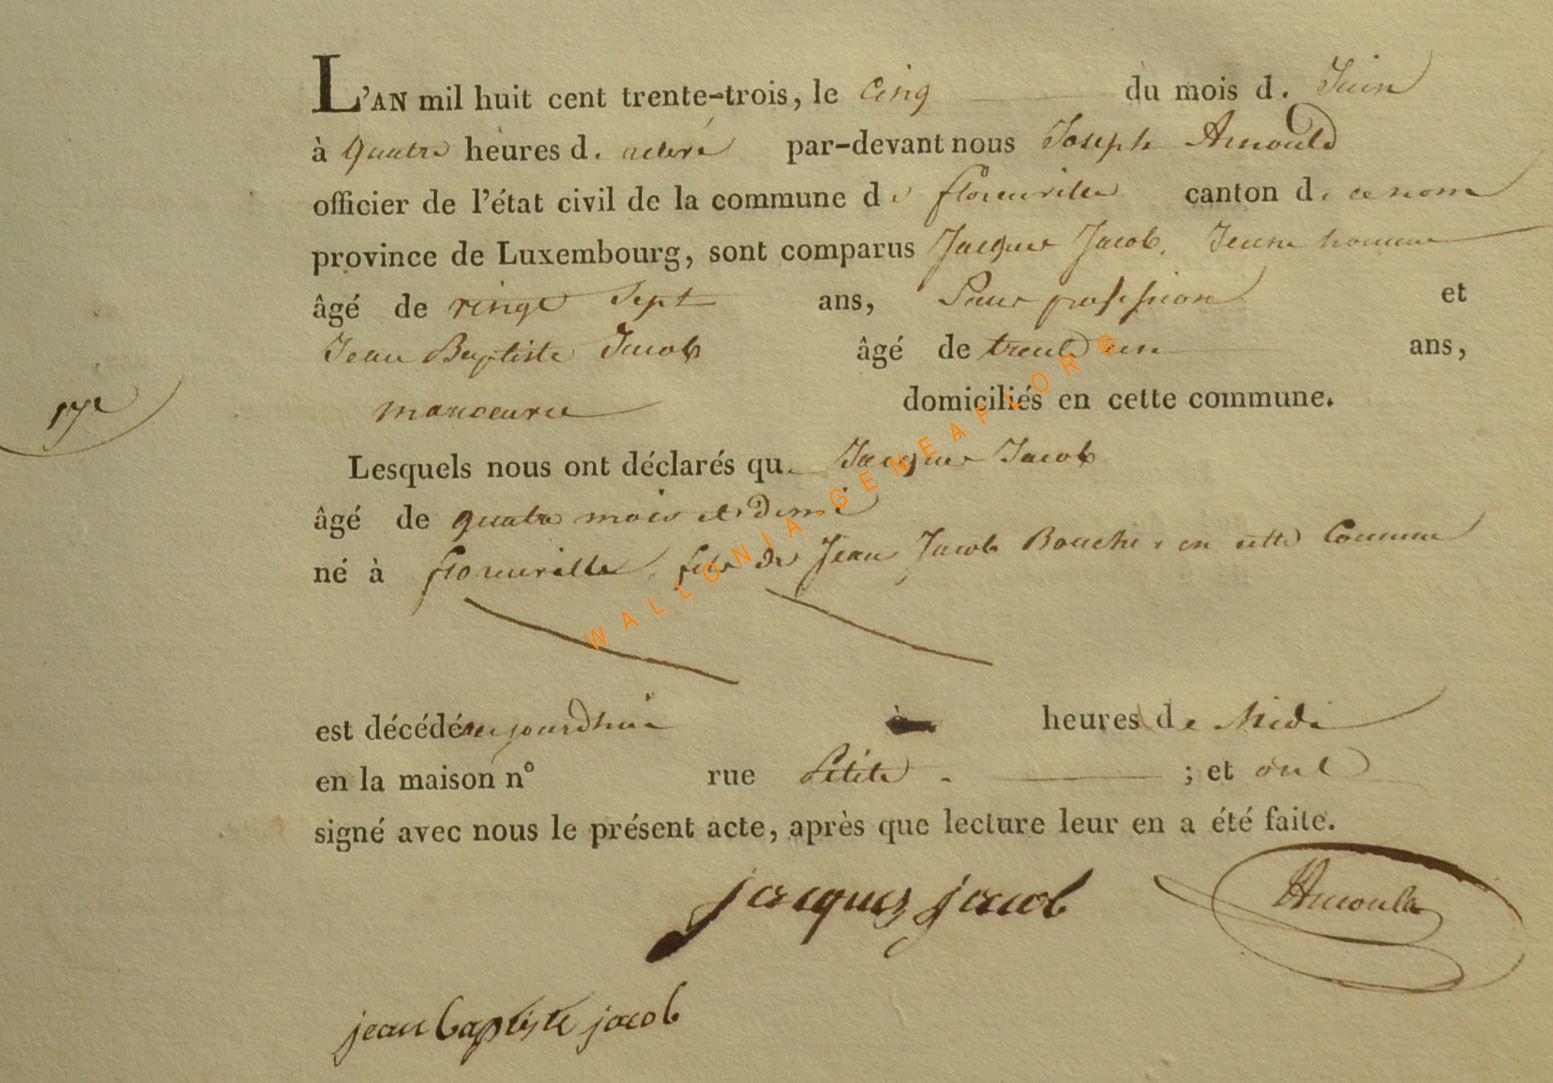 L'AN mil huit cent trente-trois, le Cinq du mois d. Juin
à quatre heures d. par-devant nous Joseph Arnould
officier de l'état civil de la commune de florenville canton d. ce nom
province de Luxembourg, sont comparus Jacques Jacob, Jeune homme
âgé de vingt Sept ans, Sans profession et
Jean Baptiste Jacob âgé de trente un ans,
manoeuvre domiciliés en cette commune.
17e
Lesquels nous ont déclarés qu. Jacques Jacob
âgé de quatre mois et demi
né à florenville, fils de Jean Jacob Boucher en cette Commune
est décédé aujourdhui à heures de Midi
en la maison n° rue Petite ; et ont
signé avec nous le présent acte, après que lecture leur en a été faite.
jacques jacob Arnould
jean baptiste jacob
WALLONIA-GENEAFLOR©